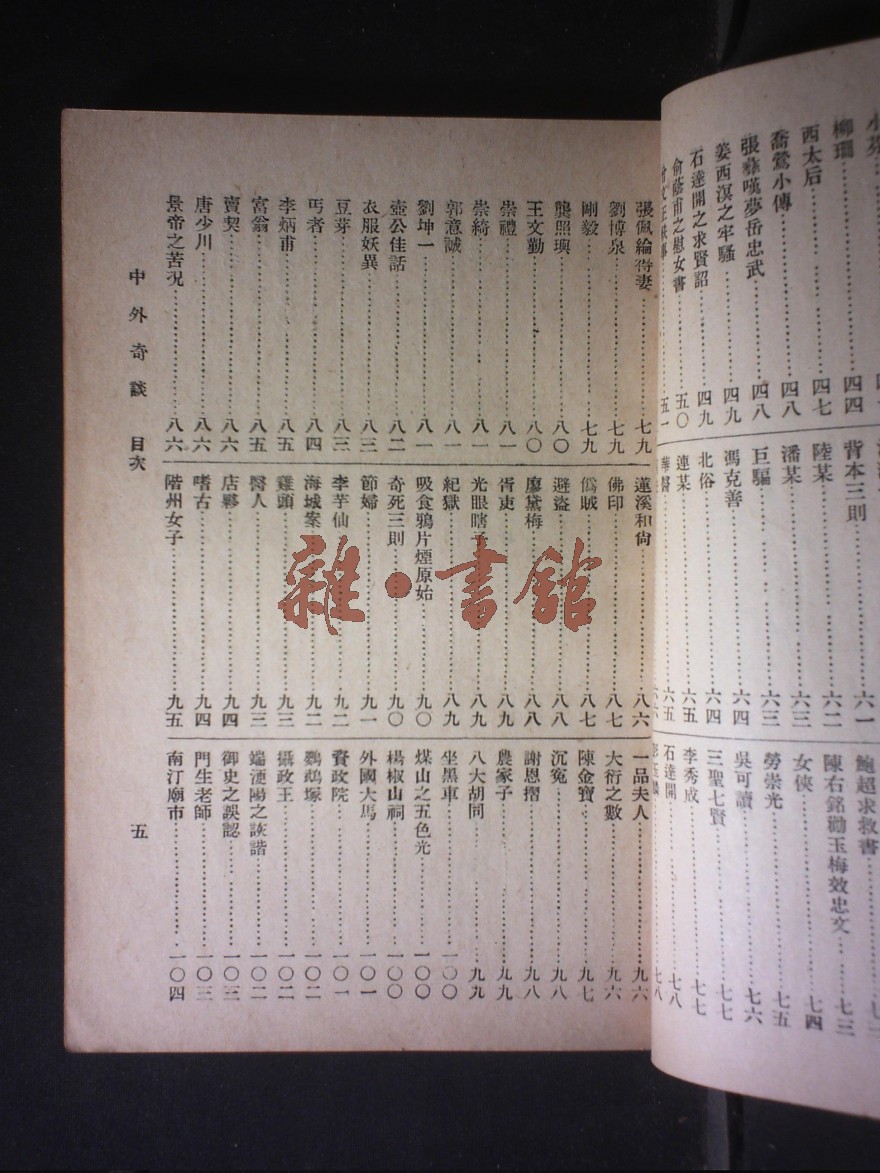 柳珊 四四
西太后 四七
喬鶯小傳 四八
張彝嘆夢岳忠武 四八
姜西溟之牢騷 四九
石達開之求賢詔 四九
俞蔭甫之慰女書 五〇
五一
背本三則 六一
陸某 六二
潘某 六三
巨騙 六三
馮克善 六四
北俗 六四
連某 六五
華醫 六五
鮑超求救書
陳右銘勸玉梅效忠文 七三
女俠 七四
勞崇光 七五
吳可讀 七六
三聖七賢 七七
李秀成 七七
石達開 七八
七八
張佩綸得妻 七九
劉博泉 七九
剛毅 七九
龔照璵 八〇
王文勤 八〇
崇禮 八一
崇綺 八一
郭意誠 八一
劉坤一 八一
壺公佳話 八二
衣服妖異 八三
豆芽 八三
丐者 八四
李炳甫 八五
富翁 八五
賣契 八六
唐少川 八六
景帝之苦況 八六
蓮溪和尙 八六
佛印 八七
僞賊 八七
避盜 八八
廖黛梅 八八
胥吏 八九
光眼瞎子 八九
紀獄 八九
吸食鴉片煙原始 九〇
奇死三則 九〇
節婦 九一
李芋仙 九二
海城案 九二
雞頭 九三
醫人 九三
店夥 九四
嗜古 九四
階州女子 九五
一品夫人 九六
大衍之數 九六
陳金寶 九七
沉冤 九八
謝恩摺 九八
農家子 九九
八大胡同 九九
坐黑車 一〇〇
煤山之五色光 一〇〇
楊椒山祠 一〇〇
外國大馬 一〇一
資政院 一〇一
鸚鵡塚 一〇二
攝政王 一〇二
端湻陽之詼諧 一〇二
御史之誤認 一〇三
門生老師 一〇三
南汀廟市 一〇四
中外奇談 目次
五
雜·書館